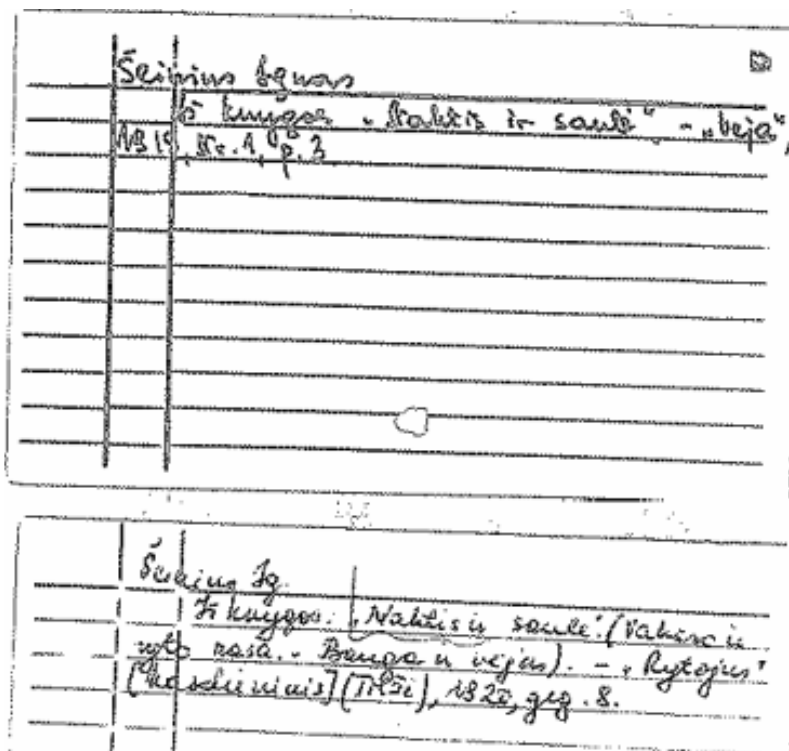 Šeinius Ignas
Iš knygos „Naktis ir saulė" - „Veja",
1919, Nr. 1, p. 3
Šeinius Ig.
Iš knygos: „Naktis ir saulė". (Vakaro ir
ryto rasa. „Banga ir vėjas). - „Rytojus"
(Tilžė), 1920, geg. 8.